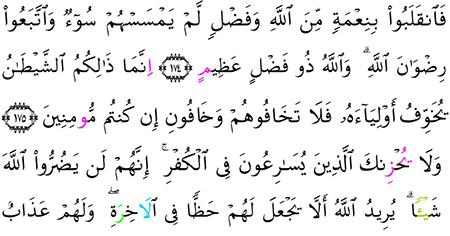 فَٱنقَلَبُوا۟ بِنِعْمَةٍ مِّنَ ٱللَّهِ وَفَضْلٍ لَّمْ يَمْسَسْهُمْ سُوٓءٌ وَٱتَّبَعُوا۟
رِضْوَٰنَ ٱللَّهِ ۗ وَٱللَّهُ ذُو فَضْلٍ عَظِيمٍ ١٧٤ اِنَّمَا ذَٰلِكُمُ ٱلشَّيْطَٰنُ
يُخَوِّفُ أَوْلِيَآءَهُۥ فَلَا تَخَافُوهُمْ وَخَافُونِ إِن كُنتُم مُّومِنِينَ ١٧٥
وَلَا يُحْزِنكَ ٱلَّذِينَ يُسَٰرِعُونَ فِى ٱلْكُفْرِ ۚ إِنَّهُمْ لَن يَضُرُّوا۟ ٱللَّهَ
شَيْـًٔا ۗ يُرِيدُ ٱللَّهُ أَلَّا يَجْعَلَ لَهُمْ حَظًّا فِى ٱلَاخِرَةِ ۖ وَلَهُمْ عَذَابٌ